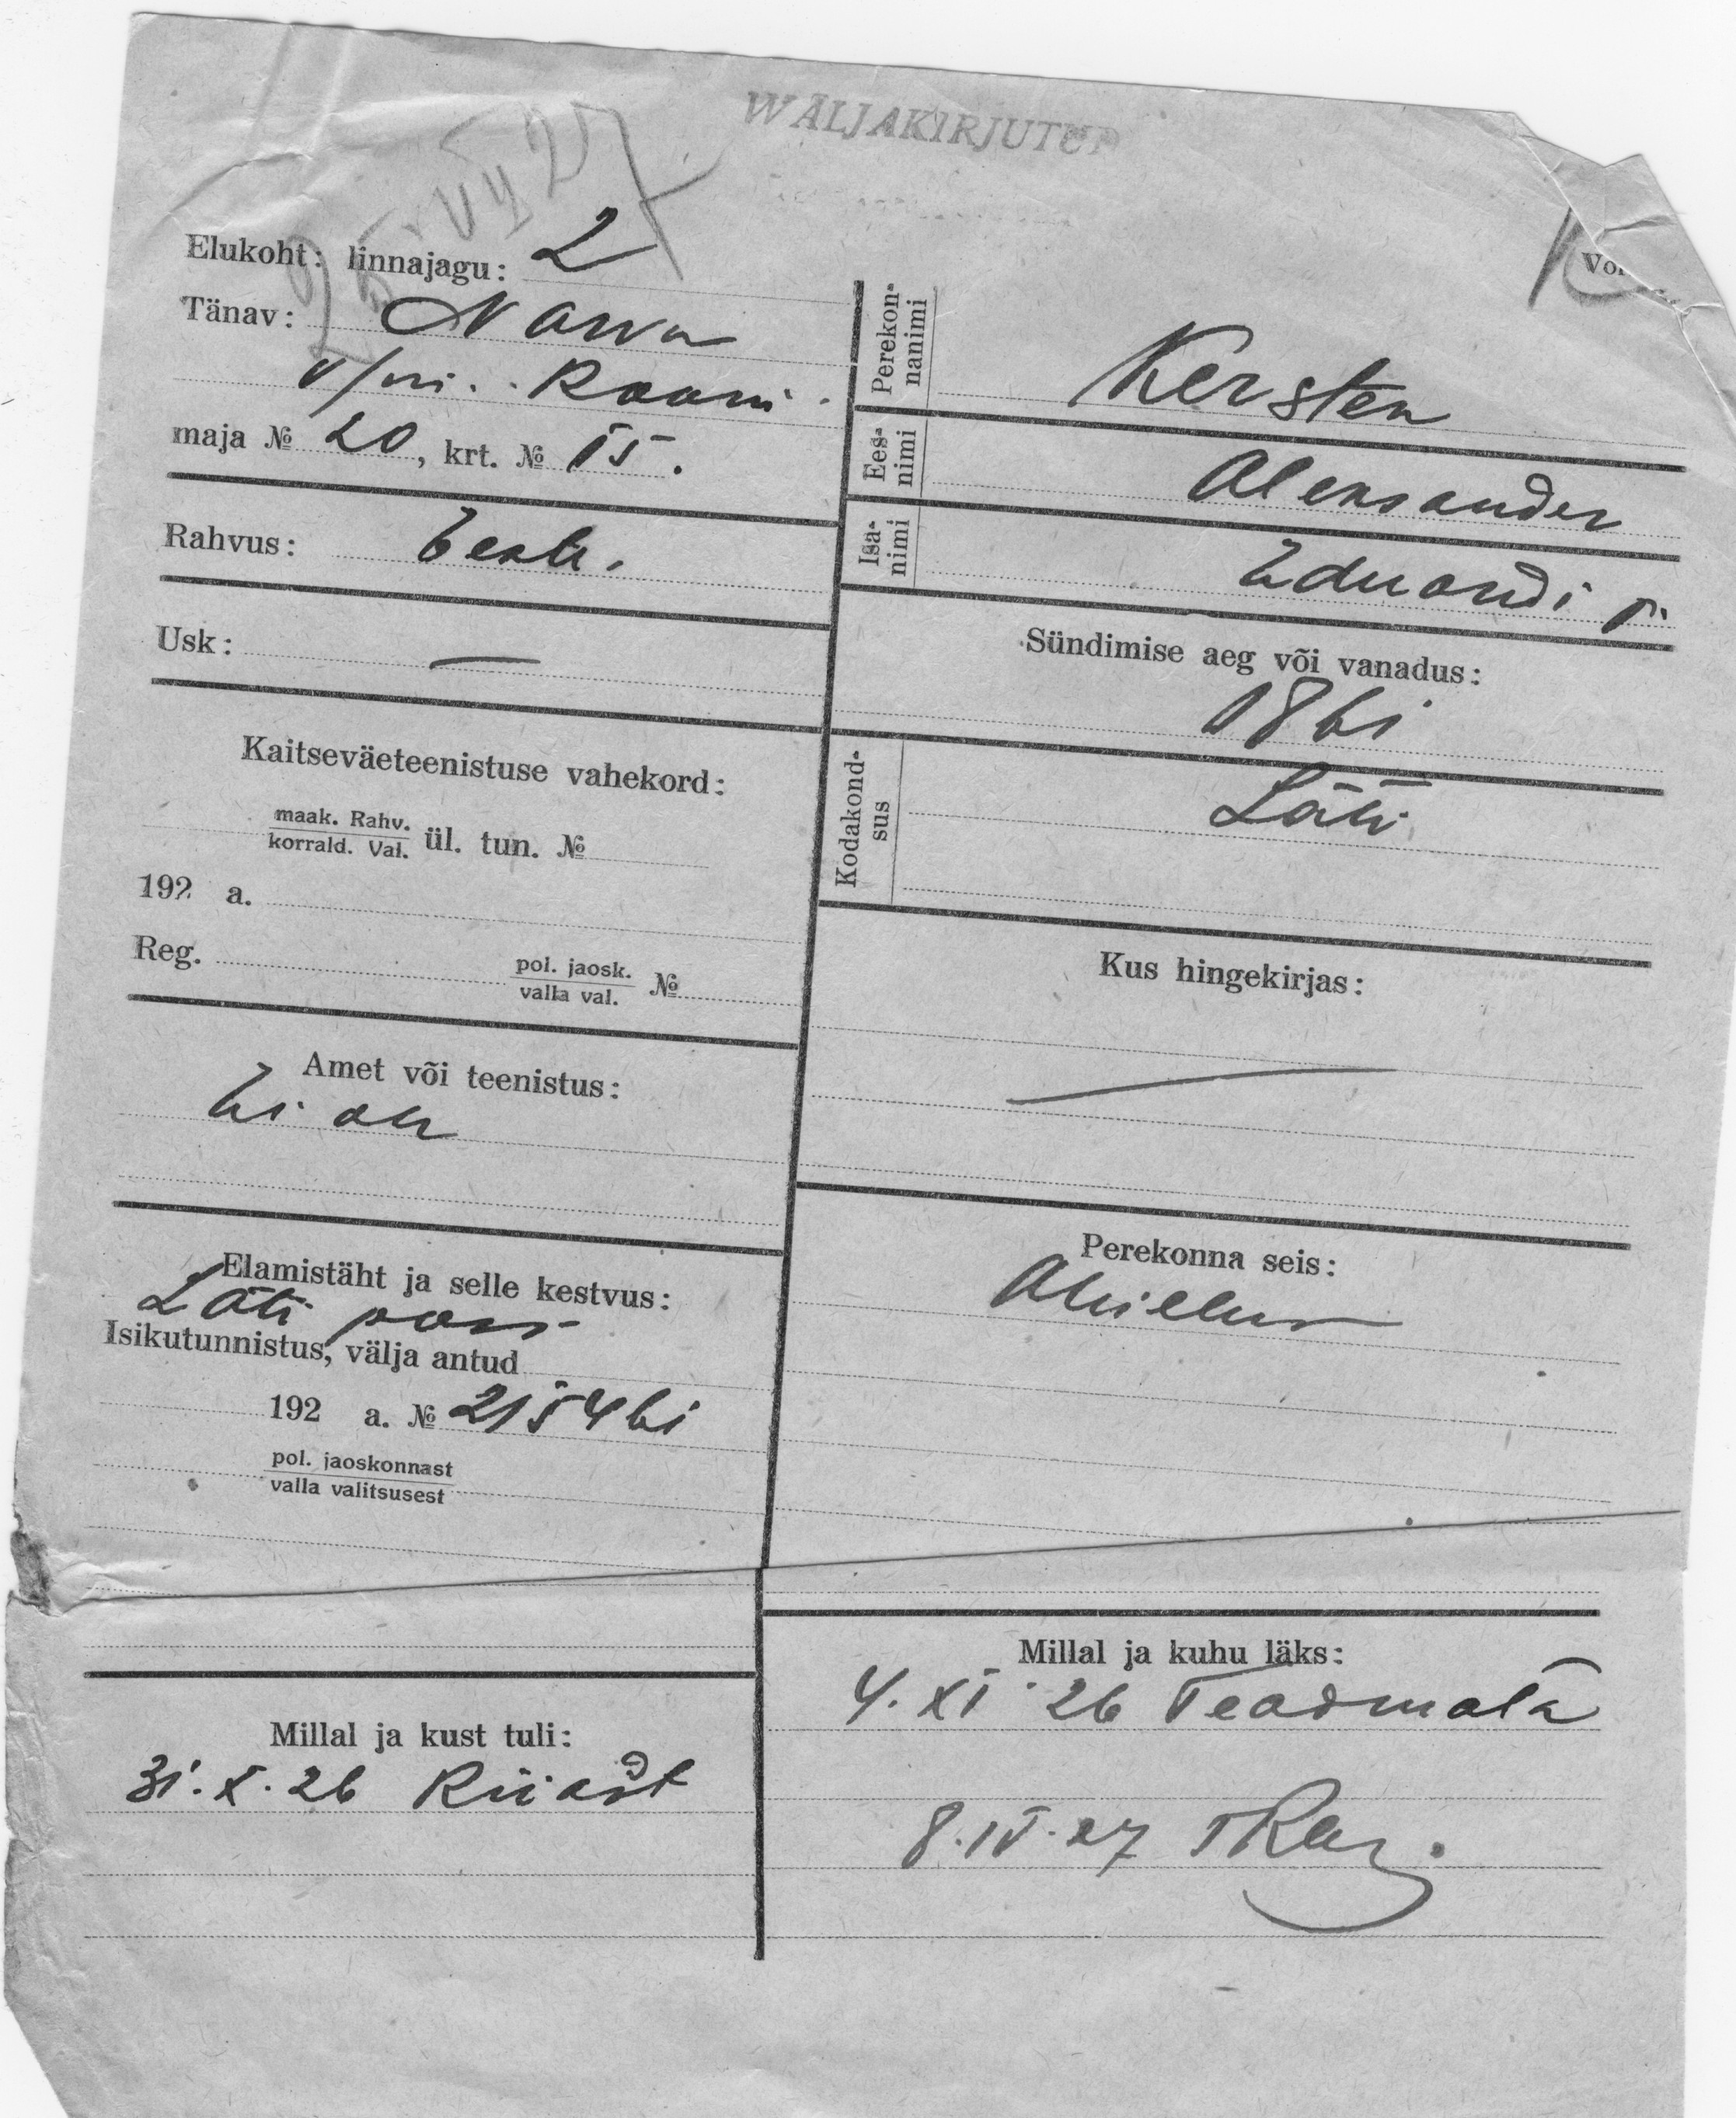 WÄLJAKIRJUTUD
Elukoht: linnajagu: 2
Tänav: Narva
v/m. Raani
maja № 20, krt. № 15.
Rahvus: Eesti.
Usk: —
Kaitseväeteenistuse vahekord:
maak. Rahv.
korrald. Val. ül. tun. №
192 a.
Reg. pol. jaosk.
valla val. №
Amet või teenistus:
Ei ole
Elamistäht ja selle kestvus:
Läti pass
Isikutunnistus, välja antud
192 a. № 215461
pol. jaoskonnast
valla valitsusest
Millal ja kust tuli:
31.X.26 Riiast
Perekonnanimi Kersten
Eesnimi Aleksander
Isanimi Eduardi p.
Sündimise aeg või vanadus:
1861
Kodakondsus Läti
Kus hingekirjas:
—
Perekonna seis:
Abielus
Millal ja kuhu läks:
4.XI.26 Teadmata
8.IV.27